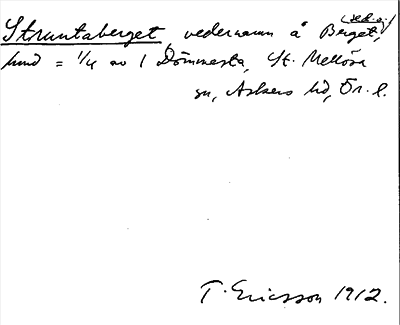 Struntaberget, vedernamn å Berget, (sed.o.)
hmd = 1/4 av 1 Dömmesta, St. Mellösa
sn, Askers hd, Ör. l.
T. Ericsson 1912.